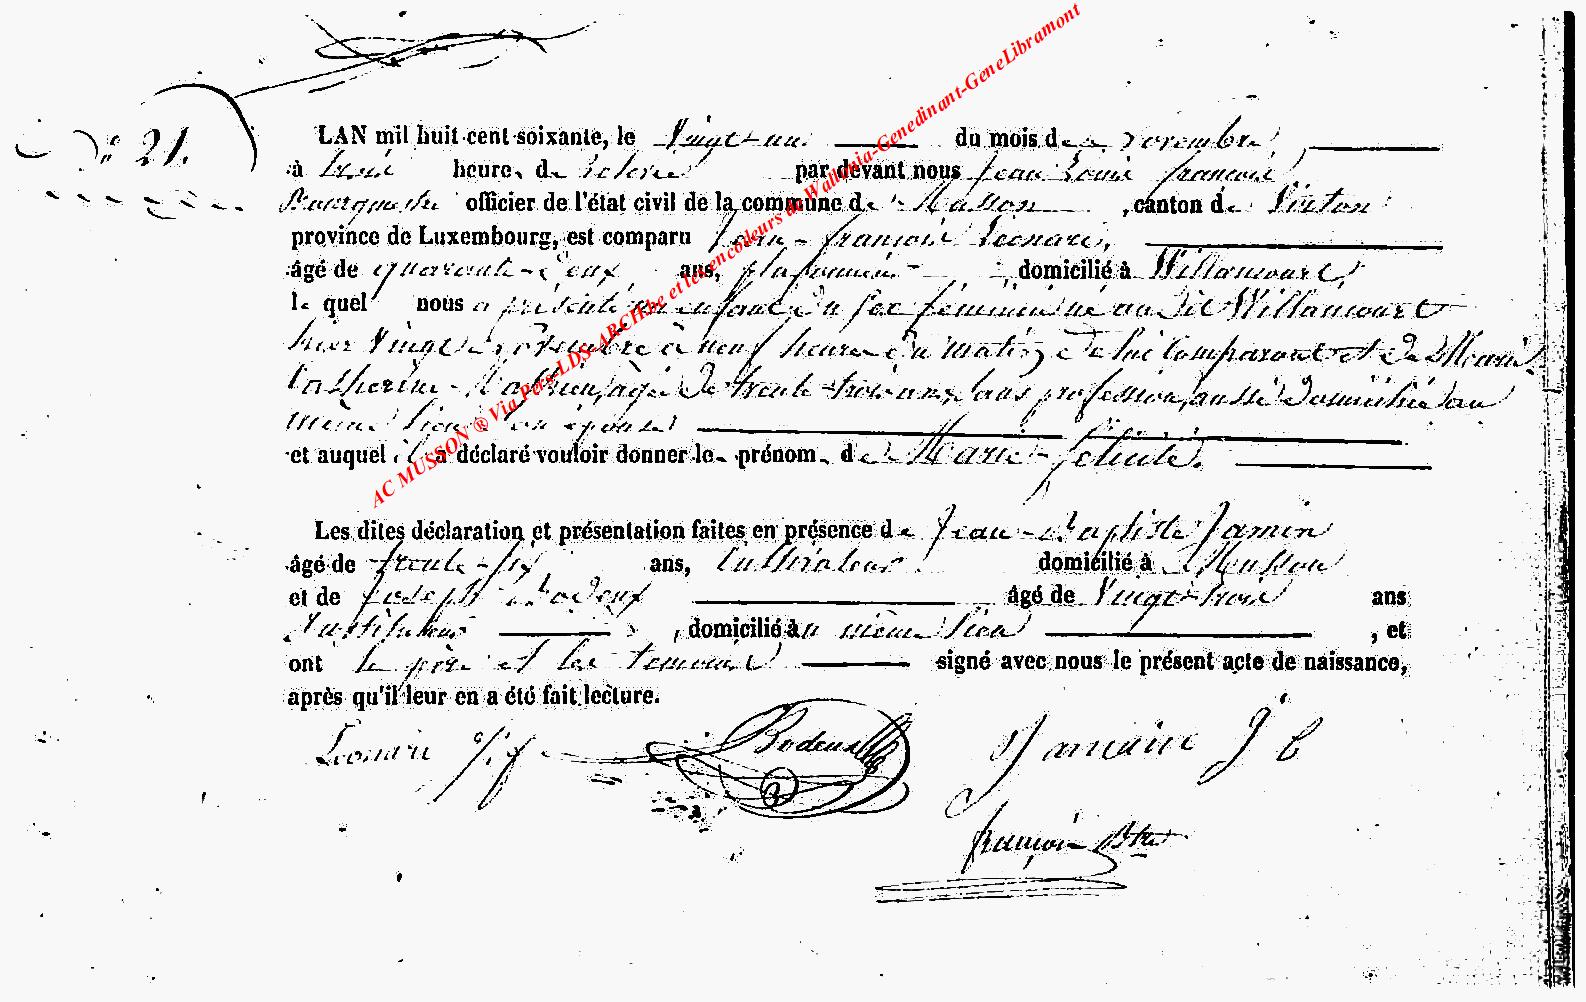 N° 21.
LAN mil huit cent soixante, le Vingt-un du mois de novembre
à trois heure de relevée par devant nous Jean Louis François,
Bourgmestre officier de l'état civil de la commune de Musson, canton de Virton
province de Luxembourg, est comparu Jean-François Leonard,
âgé de quarante-deux ans, plafonneur domicilié à Willancourt,
le quel nous a présenté un enfant du sexe féminin né au dit Willancourt
hier Vingt novembre à neuf heures du matin, de lui Comparant et de Marie
Catherine âgée de trente-trois ans, sans profession, aussi domiciliée au
même lieu son épouse
et auquel il a déclaré vouloir donner le prénom de Marie-Félicité.
Les dites déclaration et présentation faites en présence de Jean-Baptiste Jamin
âgé de trente-six ans, Cultivateur domicilié à Musson
et de Joseph Bodeux âgé de Vingt-trois ans
Instituteur, domicilié au même lieu, et
ont le père et les temoins signé avec nous le présent acte de naissance,
après qu'il leur en a été fait lecture.
Leonard J. f Bodeux Jamin J B
François Btre
AC MUSSON ® Via Pers-LDS-ARCHbe et les encodeurs de Wallonia-Genedinant-GeneLibramont